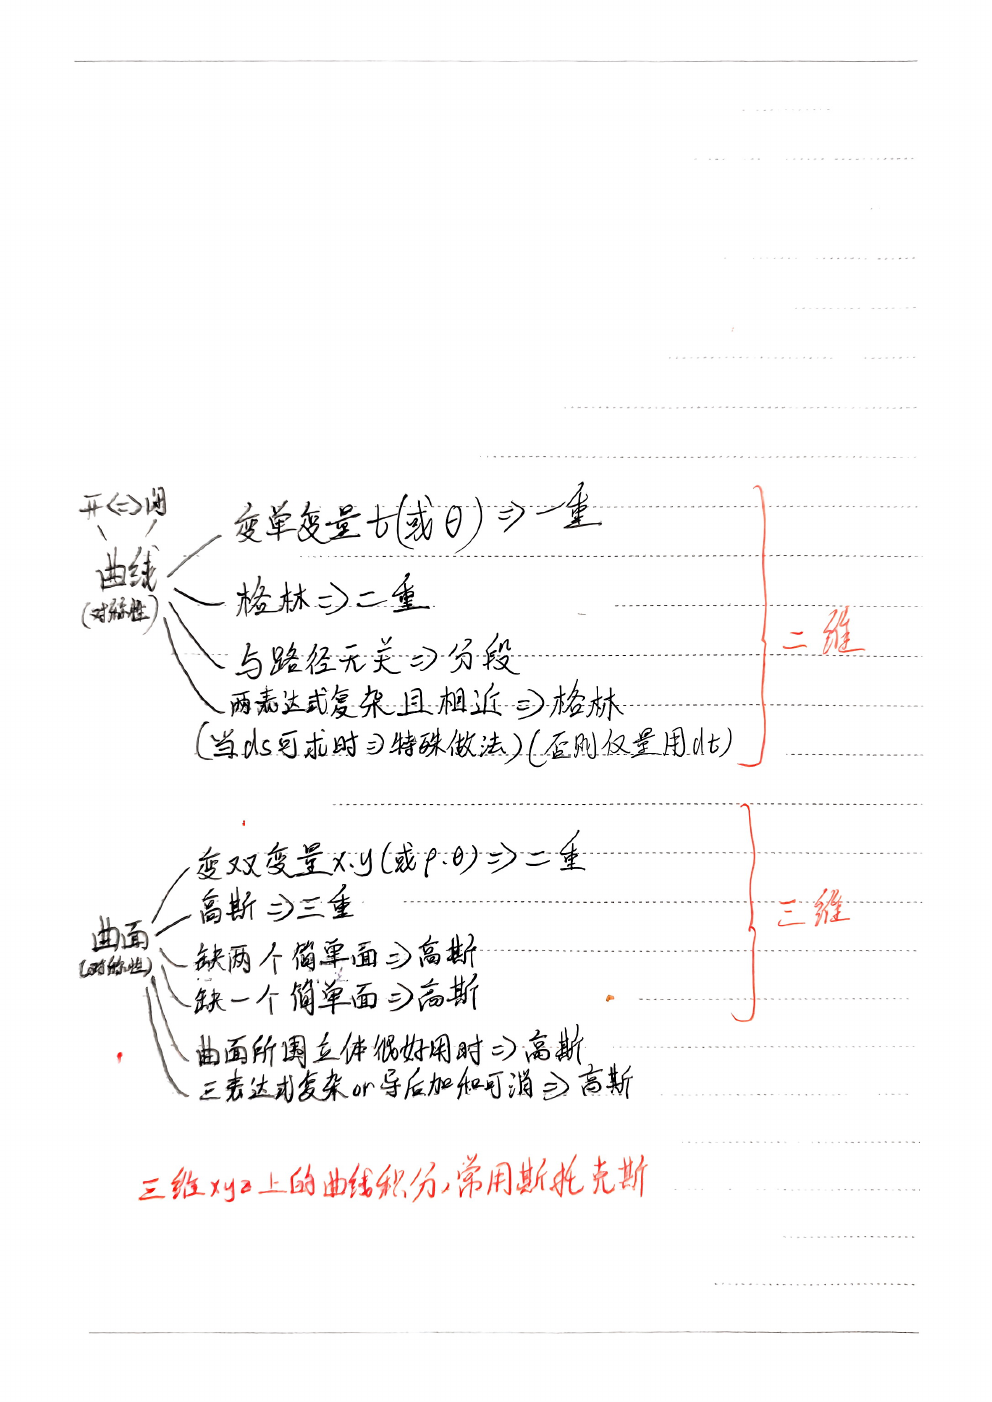 开<=>闭
曲线
(对称性)
变单变量t(或θ)=>一重
格林=>二重
与路径无关=>分段
两表达式复杂且相近=>格林
(当ds可求时=>特殊做法)(否则仅量用dt)
二维
曲面
(对称性)
变双变量x.y(或ρ.θ)=>二重
高斯=>三重
缺两个简单面=>高斯
缺一个简单面=>高斯
曲面所围立体很好用时=>高斯
三表达式复杂or导后加和可消=>高斯
三维
三维xyz上的曲线积分,常用斯托克斯